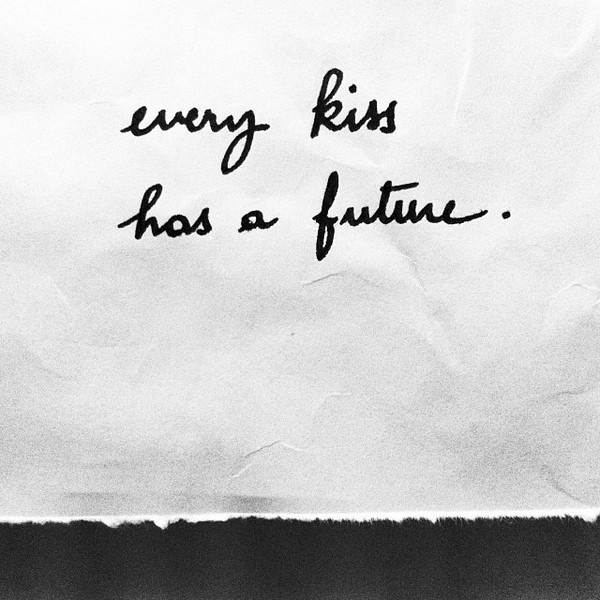 every kiss
has a future.